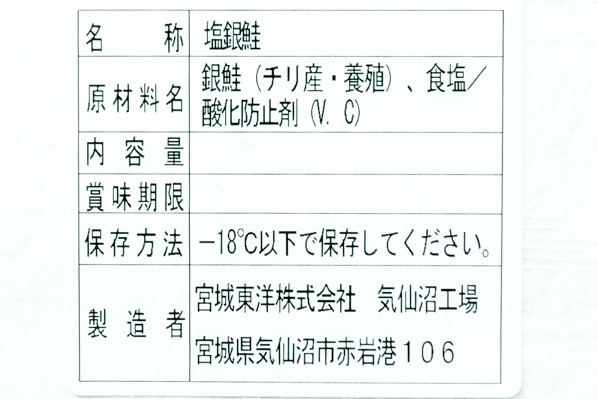 名称 塩銀鮭
原材料名 銀鮭（チリ産・養殖）、食塩／
酸化防止剤（V. C）
内容量
賞味期限
保存方法 －18℃以下で保存してください。
製造者 宮城東洋株式会社　気仙沼工場
宮城県気仙沼市赤岩港１０６